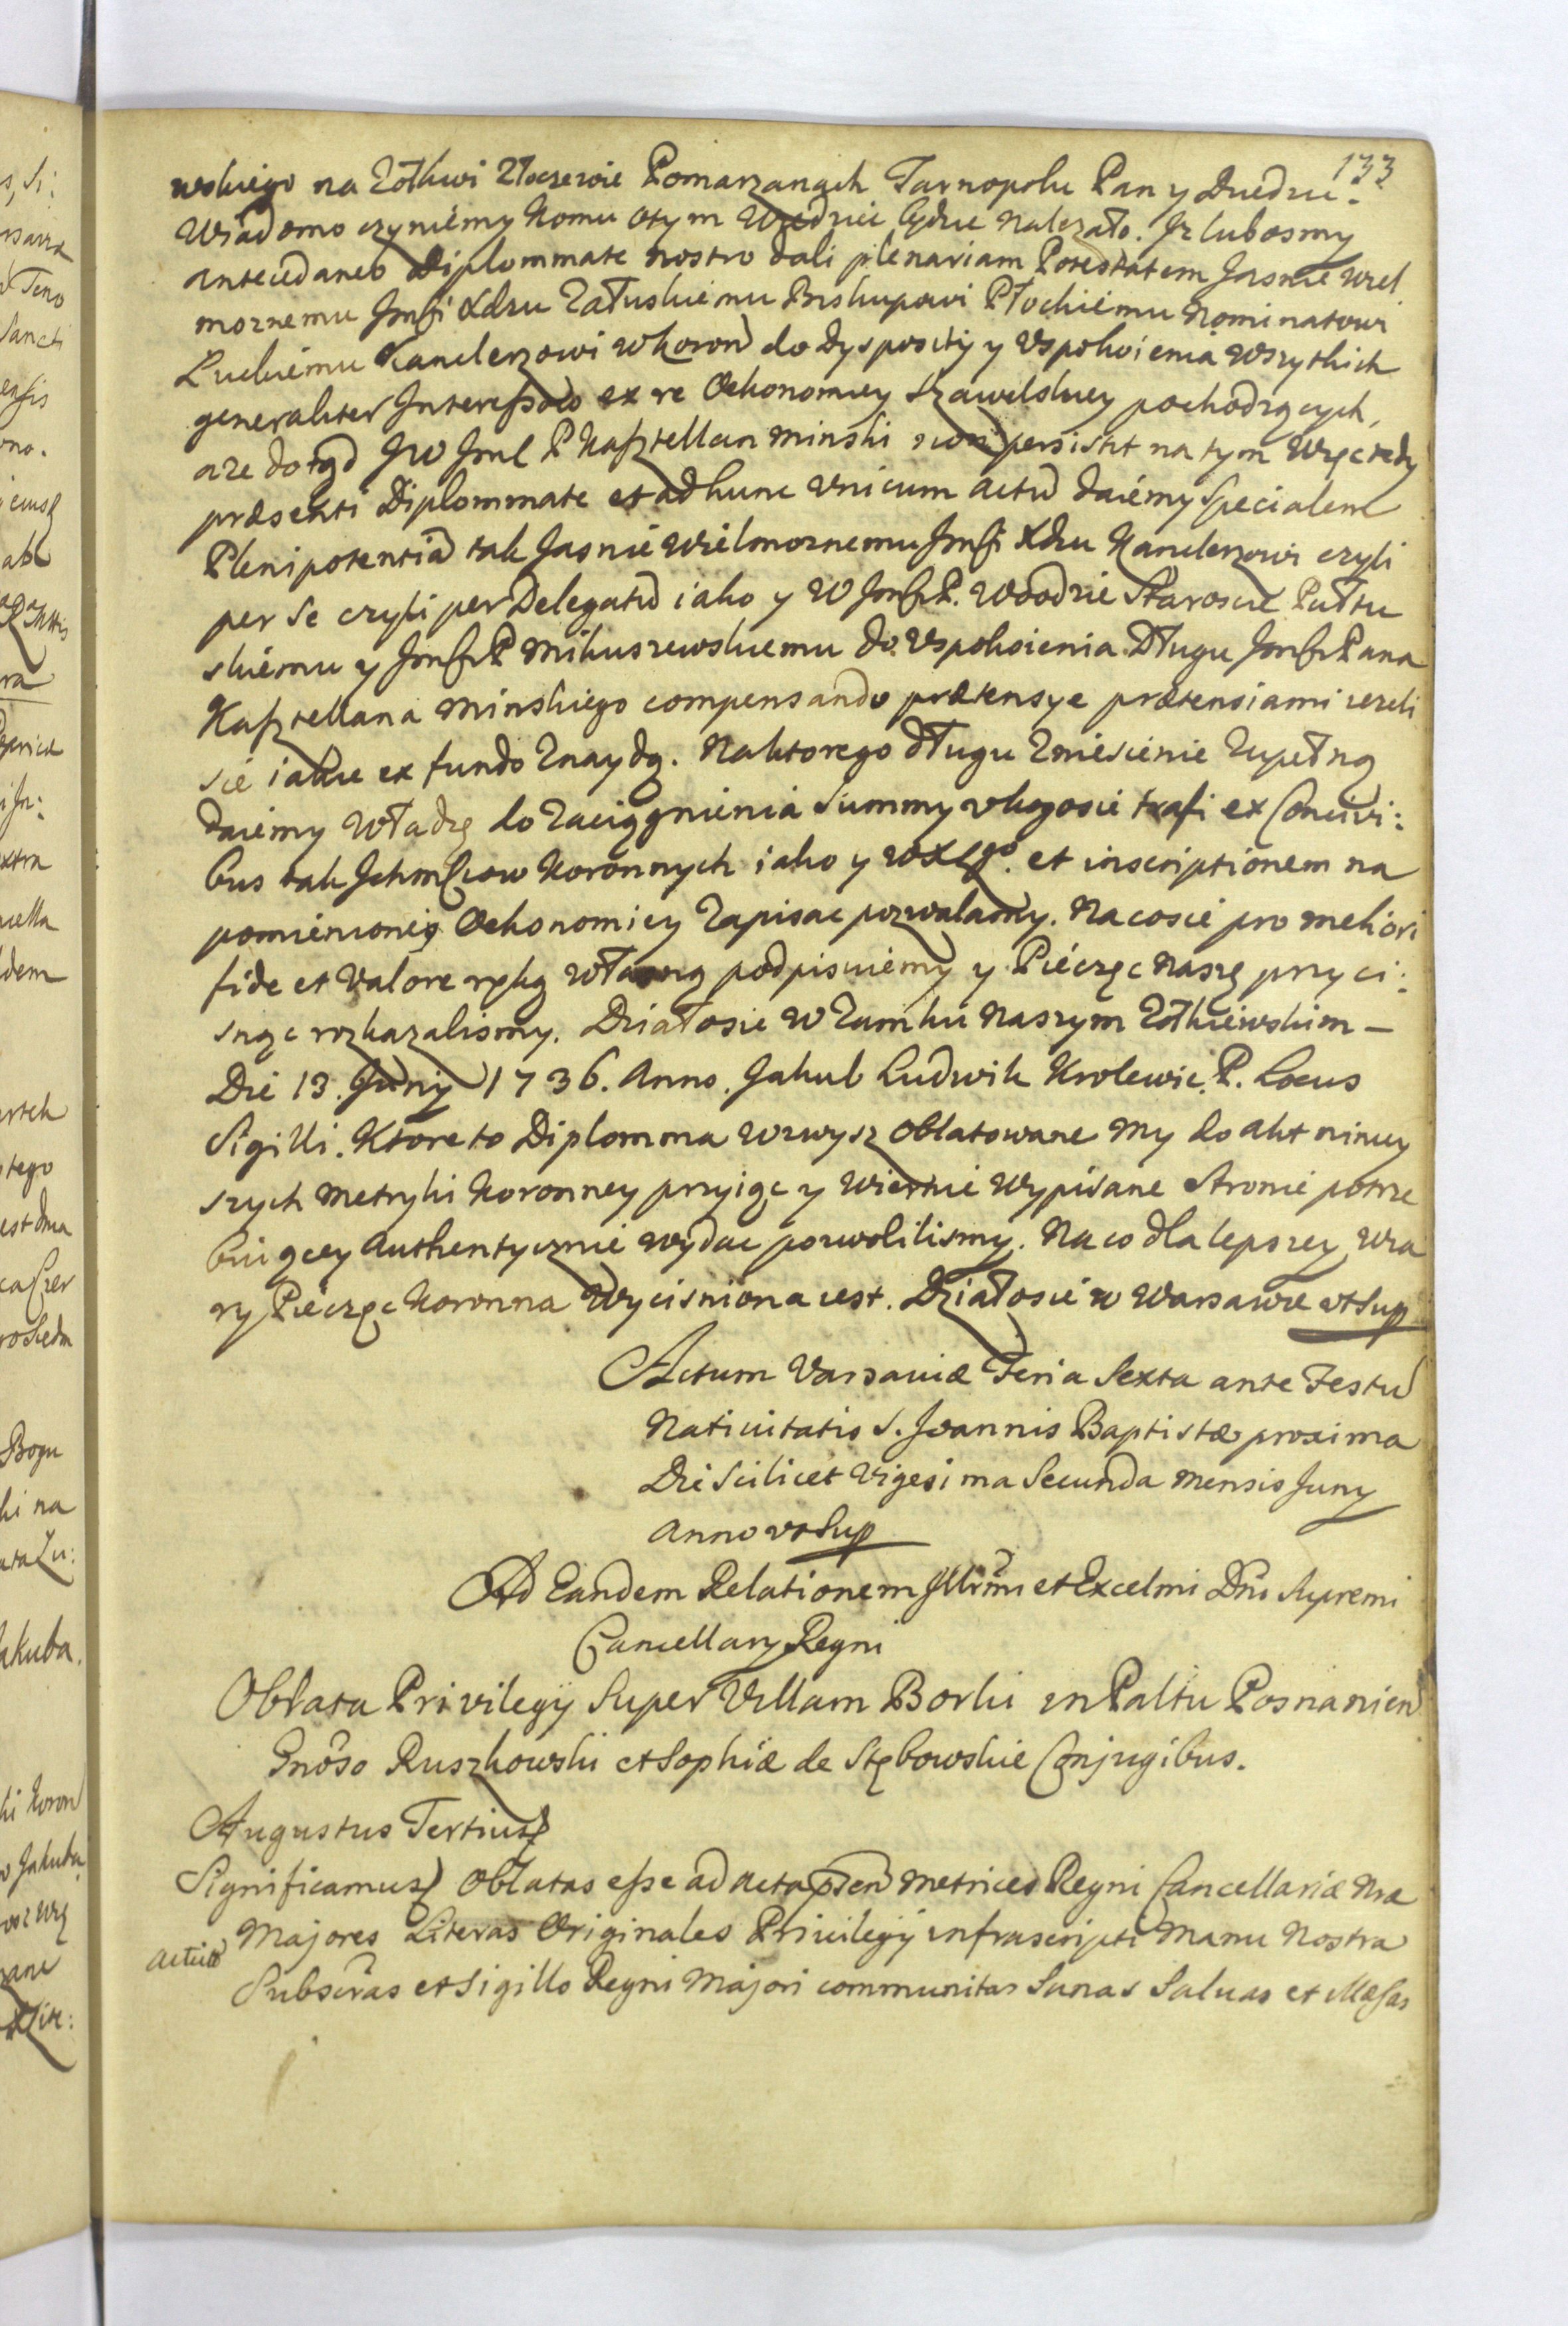 133
wskiego na Zołkwi Złoczewie Pomarzanach Tarnopolu Pan y Dziedzic.
Wiadomo czyniemy Komu otym Wiedziec będzie nalezało. Iz lubosmy
antecedaneo Diplommate nostro dali plenariam Potestatem Jasnie Wiel
moznemu Jmći Xdzu Załuskiemu Biskupowi Płockiemu Nominatowi
Łuckiemu Kanclerzowi W Koron do Dyspozycij y Uspokoienia Wszytkich
generaliter Interessow ex re Oekonomiey Szawelskiey pochodzących,
aze dotąd JW Jmć P Kasztellan Minski non persistit na tym Więc tedy
præsenti Diplommate et ad hunc unicum actu daiemy Specialem
Plenipotentia tak Jasnie Wielmoznemu Jmći Xdzu Kanclerzowi czyli
per Se czyli per Delegatu iako y W Jmći P. Woodzie Staroscie Pułtu
skiemu y Jmći P Mikuszewskiemu do Uspokoienia Długu Jmći Pana
Kasztellana Minskiego compensando prætensye prætensiami iezeli
się iakie ex fundo Znaydą. Naktorego długu Zniesienie Zupełną
daiemy Władzę do Zaciągnienia Summy u kogosie trafi ex Concivi:
bus tak Ichmciow Koronnych iako y WXLgo. et inscriptionem na
pomienioney Oekonomiey Zapisac pozwalamy. Na cosię pro meliori
fide et Valore ręką własną podpisuiemy y Pieczęc Naszę przyci:
snąc rozkazalismy. Działosię W Zamku Naszym Zołkiewskim —
Die 13. Junij 1736. Anno. Jakub Ludwik Krolewic. P. Locus
Sigilli. Ktore to Diplomma wzwysz oblatowane My do akt niniey
szych Metryki Koronney przyiąc y Wiernie Wypisane Stronie potrze
buiącey Authentycznie wydac pozwolilismy. Na co dla lepszey wia
ry Pieczęc Koronna Wycisniona iest. Działosię w Warsawie ut Sup
Actum Varsaviæ Feria Sexta ante Festu
Nativitatis S. Joannis Baptistæ proxima
Die Scilicet Vigesima Secunda Mensis Juny
Anno ut Sup
Ad Eandem Relationem Illrmi et Excelmi Dni Supremi
Cancellary Regni
Oblata Privilegij Super Villam Borki in Paltu Posnanien
Gnoso Ruszkowski et Sophiæ de Stębowskie Conjugibus.
Augustus Tertius
Significamus Oblatas esse ad Acta psen Metrices Regni Cancellariæ Nræ
Majores Literas Originales Privilegij infrascripti Manu Nostra
Subscras et Sigillo Regni Majori communitas Sanas Salvas et Illæsas